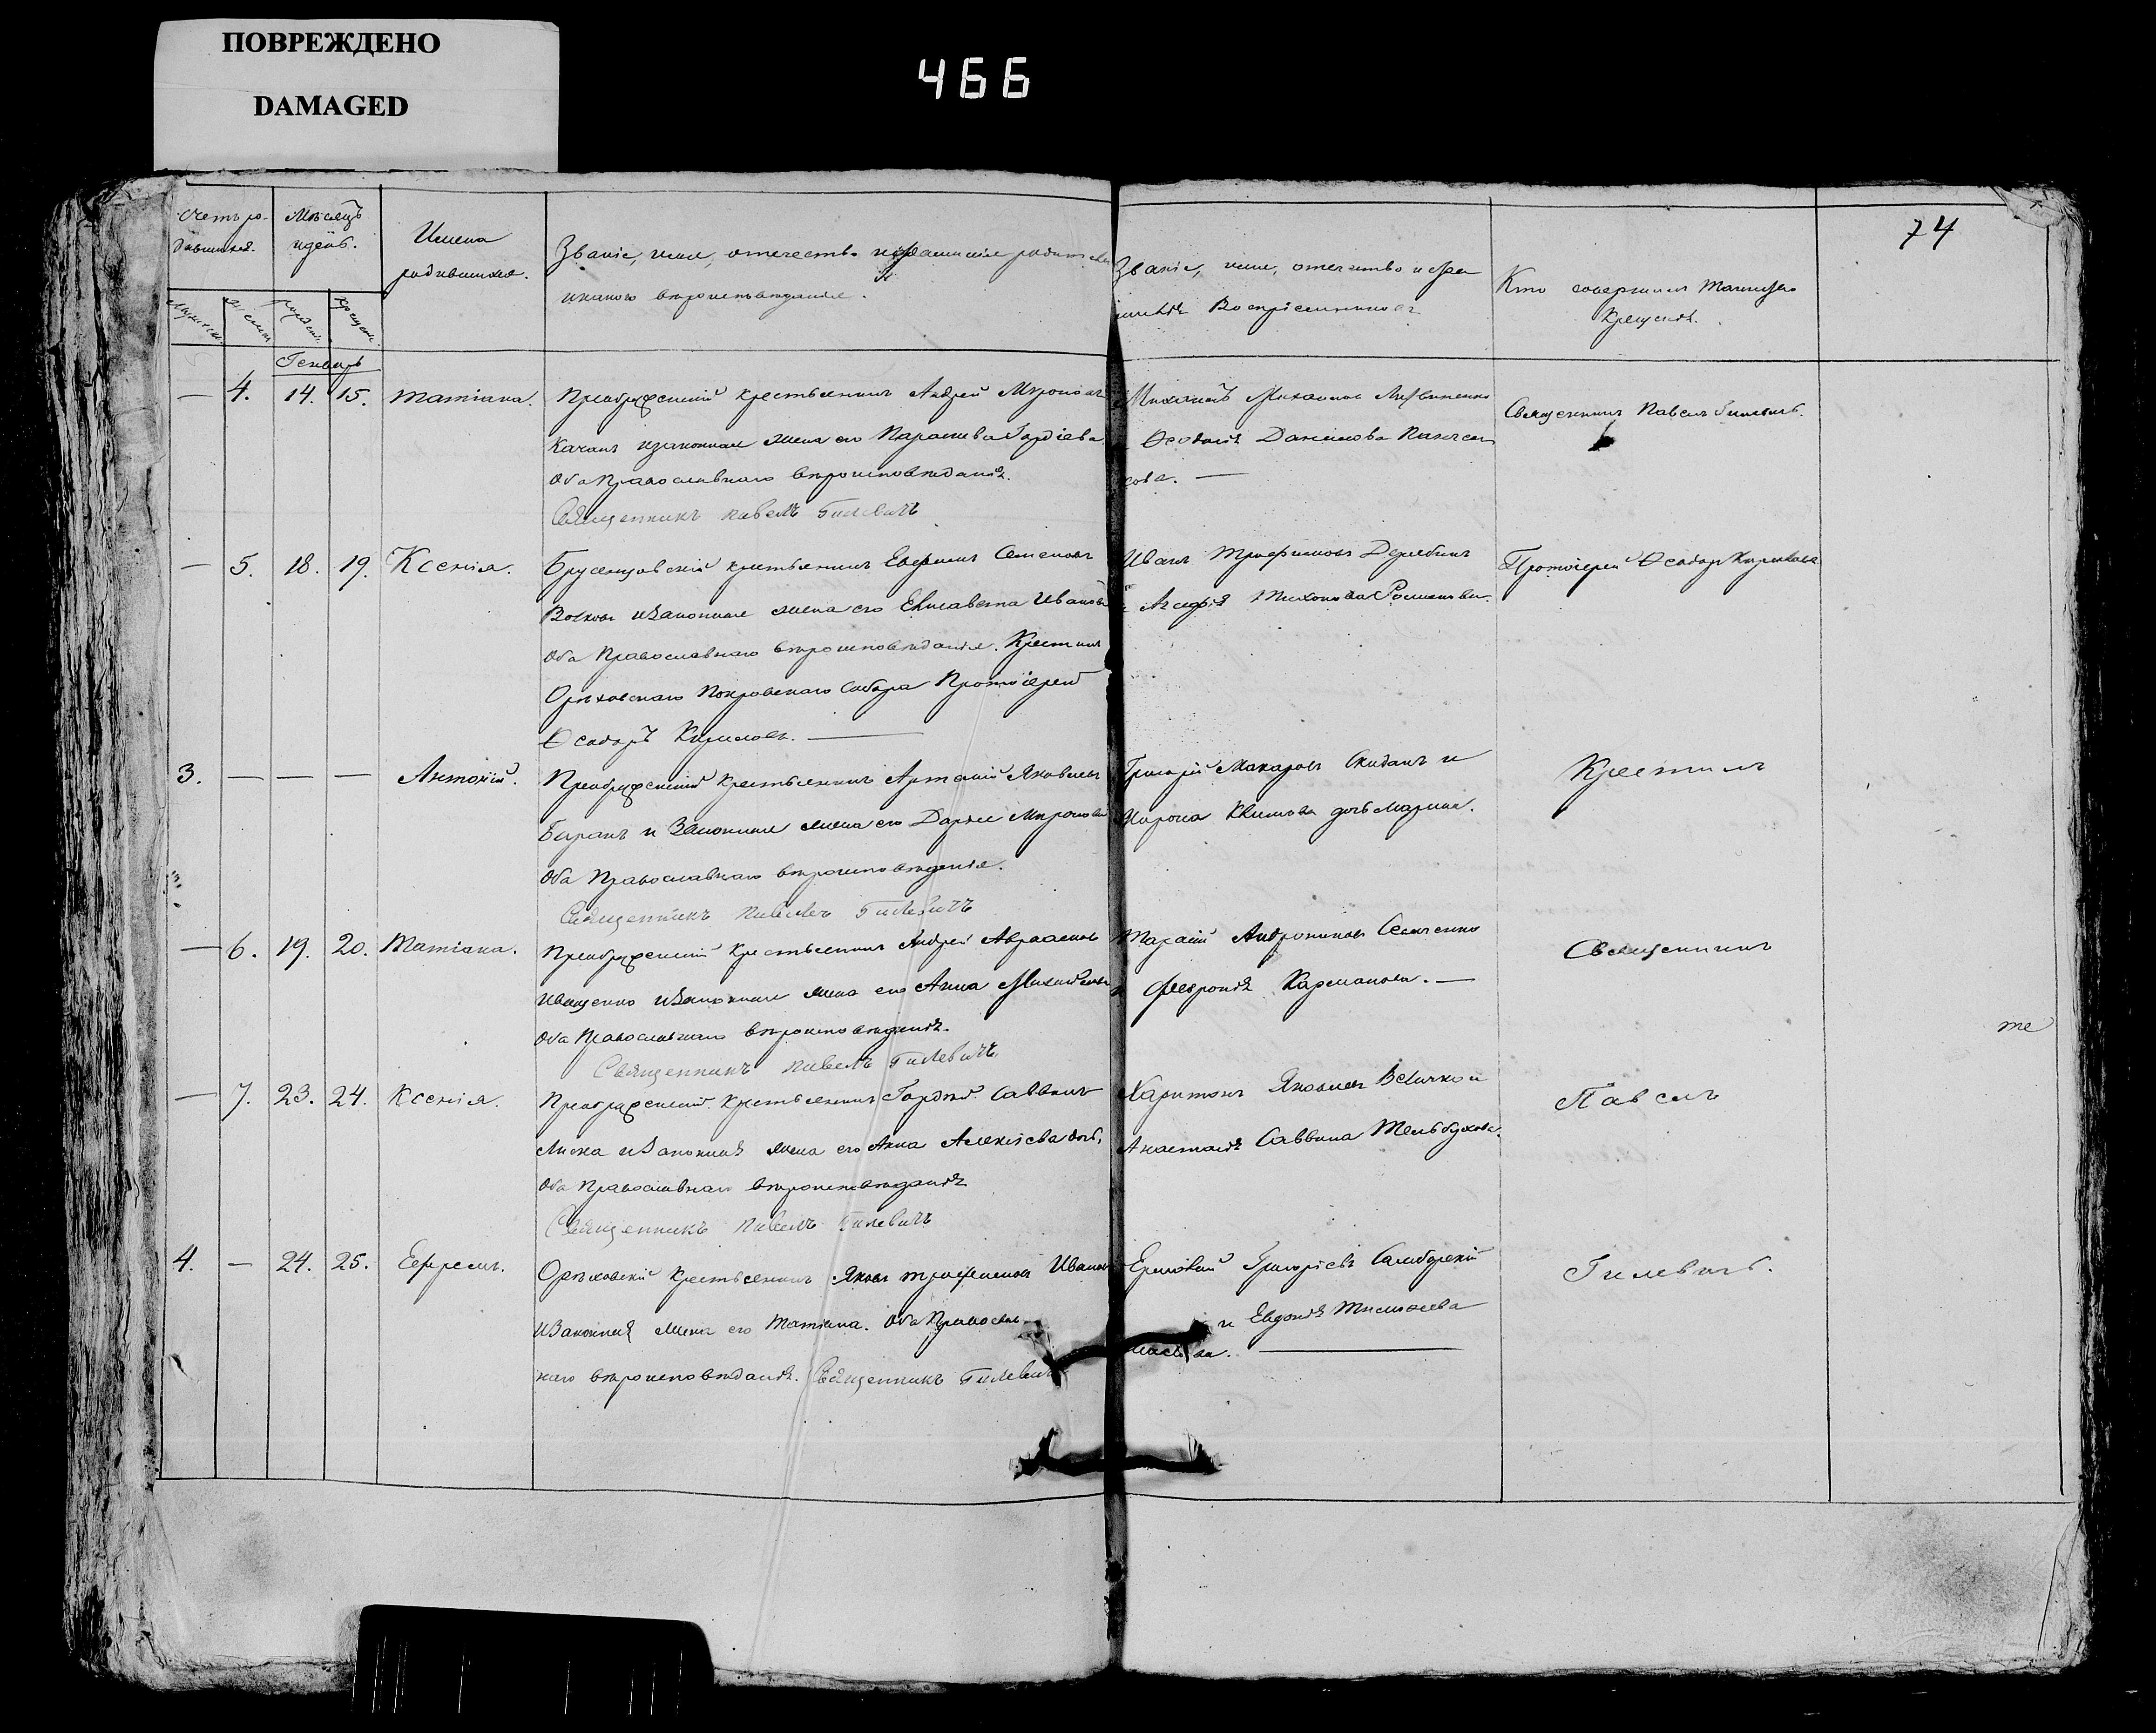 ПОВРЕЖДЕНО
DAMAGED
466
74
Счетъ ро-
дившихся.
Мѣсяцъ
и день.
Имена
родившихся.
Званіе, имя, отчество и фамиліе родителей
и какого вѣроисповѣданія.
Званіе, имя, отчество и фа
милія Воспріемниковъ
Кто совершилъ Таинство
Крещенія.
Генварь
— 4. 14. 15. Татіана.
Преображенскій крестьянинъ Андрей Мироновъ
Качанъ и законная жена его Параскева Гордіева
Оба Православнаго вѣроисповѣданія.
Священникъ Павелъ Гилевичъ
Михаилъ
и Ѳеодосія Данилова
сова. —
Священникъ Павелъ Гилевичь.
— 5. 18. 19. Ксенія.
Крестьянинъ Евфимъ Семеновъ
Волковъ и Законная жена его Елисавета Иванова
Оба Православнаго вѣроисповѣданія. Крестилъ
Орѣховскаго Покровскаго Собора Протоіерей
Ѳеодоръ Кириловъ. —
Иванъ Трофимовъ
и Агафія Тихонова
Протоіерей Ѳеодоръ Кириловъ
3. — — — Антоній.
Преображенскій Крестьянинъ Артемій Яковлевъ
Баранъ и Законная жена его Дарья Миронова
Оба Православнаго вѣроисповѣданія.
Священникъ Павелъ Гилевичъ
Григорій Макаровъ Скиданъ и
Мирона дочь Марина.
Крестилъ
— 6. 19. 20. Татіана.
Преображенскій Крестьянинъ Андрей Авраамовъ
Иващенко и Законная жена его Анна Михайлова
Оба Православнаго вѣроисповѣданія.
Священникъ Павелъ Гилевичъ
Тарасій Андрониковъ
и Февронія Карманова. —
Священникъ
те
— 7. 23. 24. Ксенія.
Преображенскій Крестьянинъ Гордѣй Саввинъ
и Законная жена его Анна Алексіева
Оба Православнаго вѣроисповѣданія
Священникъ Павелъ Гилевичъ
Харитонъ Яковлевъ Величко и
Анастасія Саввина
Павелъ
4. — 24. 25. Ефремъ.
Орѣховскій Крестьянинъ Яковъ Трофимовъ Ивановъ
и Законная жена его Татіана. Оба Православ-
наго вѣроисповѣданія. Священникъ Гилевичъ
Григоріевъ
и Евдокія Тимофеева
Гилевичь.